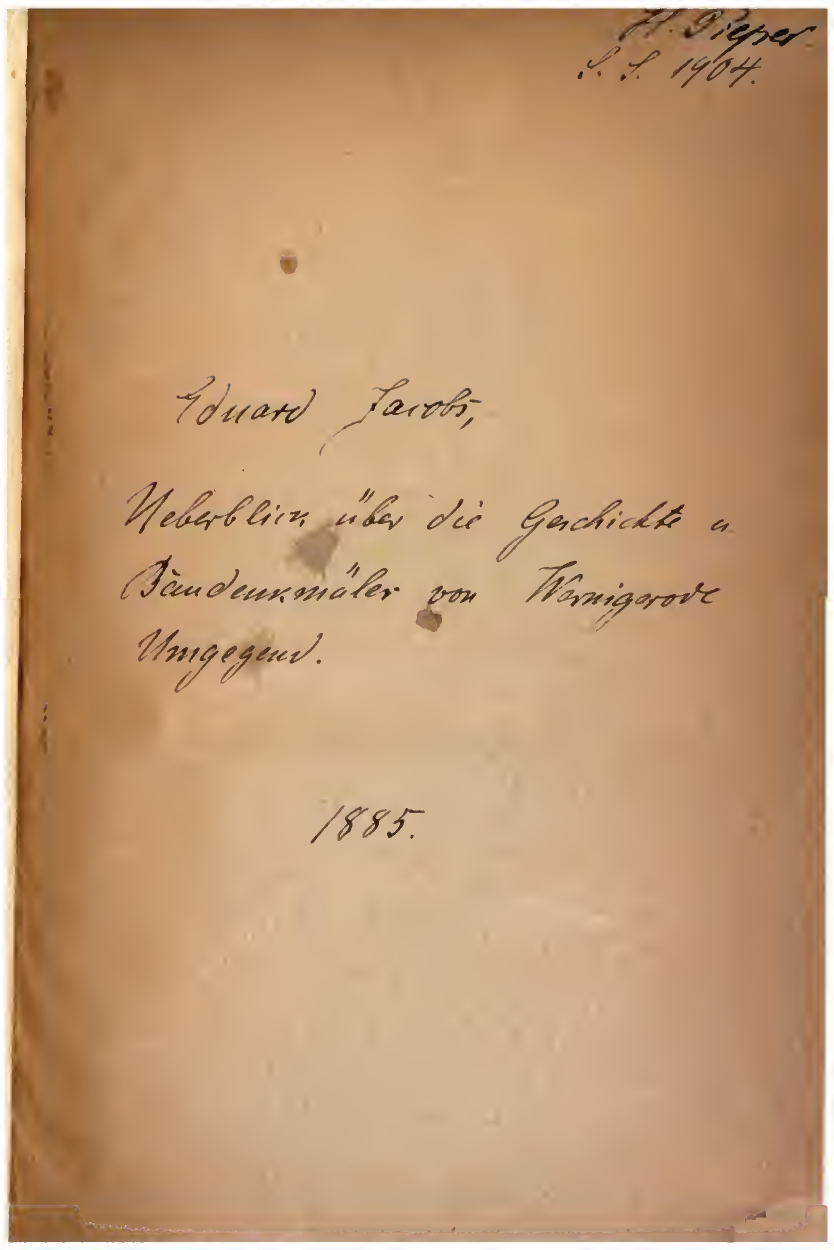 H. Pieper.
S. S. 1904.
Eduard Jacobs,
Ueberblick über die Geschichte u
Baudenkmäler von Wernigerode
Umgegend.
1885.